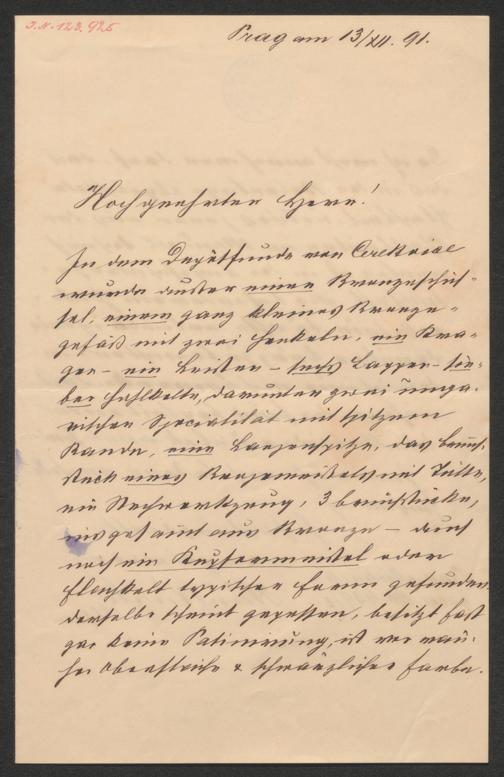 J.N. 123.925
Prag am 13/XII. 91.
Hochgeehrter Herr!
In dem Depôtfunde von Cerekvice
wurde außer einer Bronzeschüs-
sel, einem ganz kleines Bronze-
gefäß mit zwei Henkeln, ein Kra-
gen- ein Leisten- sechs Lappen- sie-
ben Hohlkelte, darunter zwei unga-
rischer Specialität mit spitzem
Rande, eine Lanzenspitze, das Bruch-
stück eines Bronzemeißels mit Tülle,
ein Stechwerkzeug, 3 Bruchstücke,
insgesamt aus Bronze – auch
noch ein Kupfermeißel oder
Flachkelt typischer Form gefunden.
derselbe scheint gegossen, besitzt fast
gar keine Patinirung, ist von rau-
her Oberfläche & schwärzlicher Farbe.